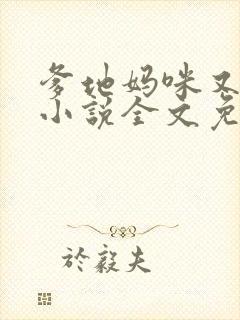 爹地妈咪又
小説全文免
於毅夫